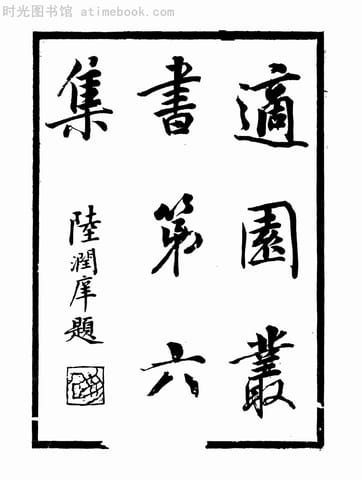 时光图书馆 atimebook.com
適園叢
書第六
集
陸潤庠題